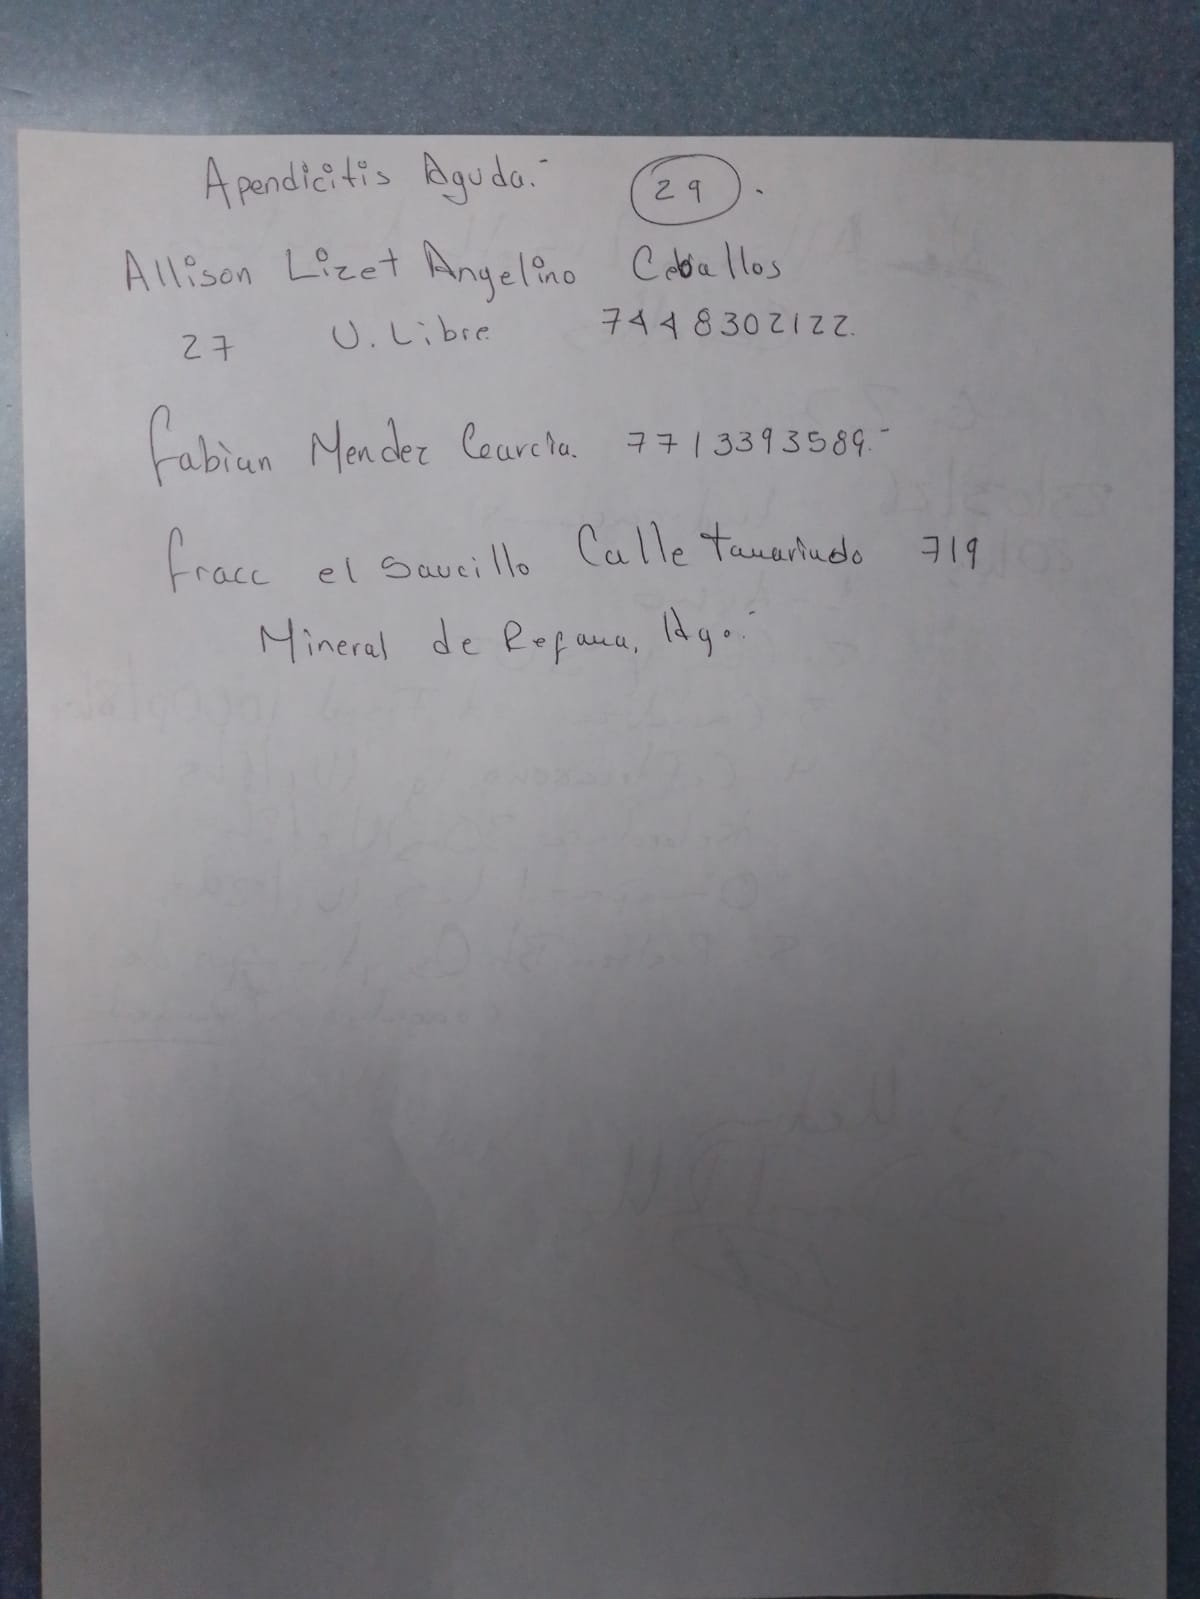 Apendicitis Aguda.- 29.
Allison Lizet Angelino Ceballos
27 U. Libre 7448302122.
Fabian Mendez Garcia. 7713393589.-
fracc el Saucillo Calle Tamarindo 719
Mineral de Refoma, Hgo.-